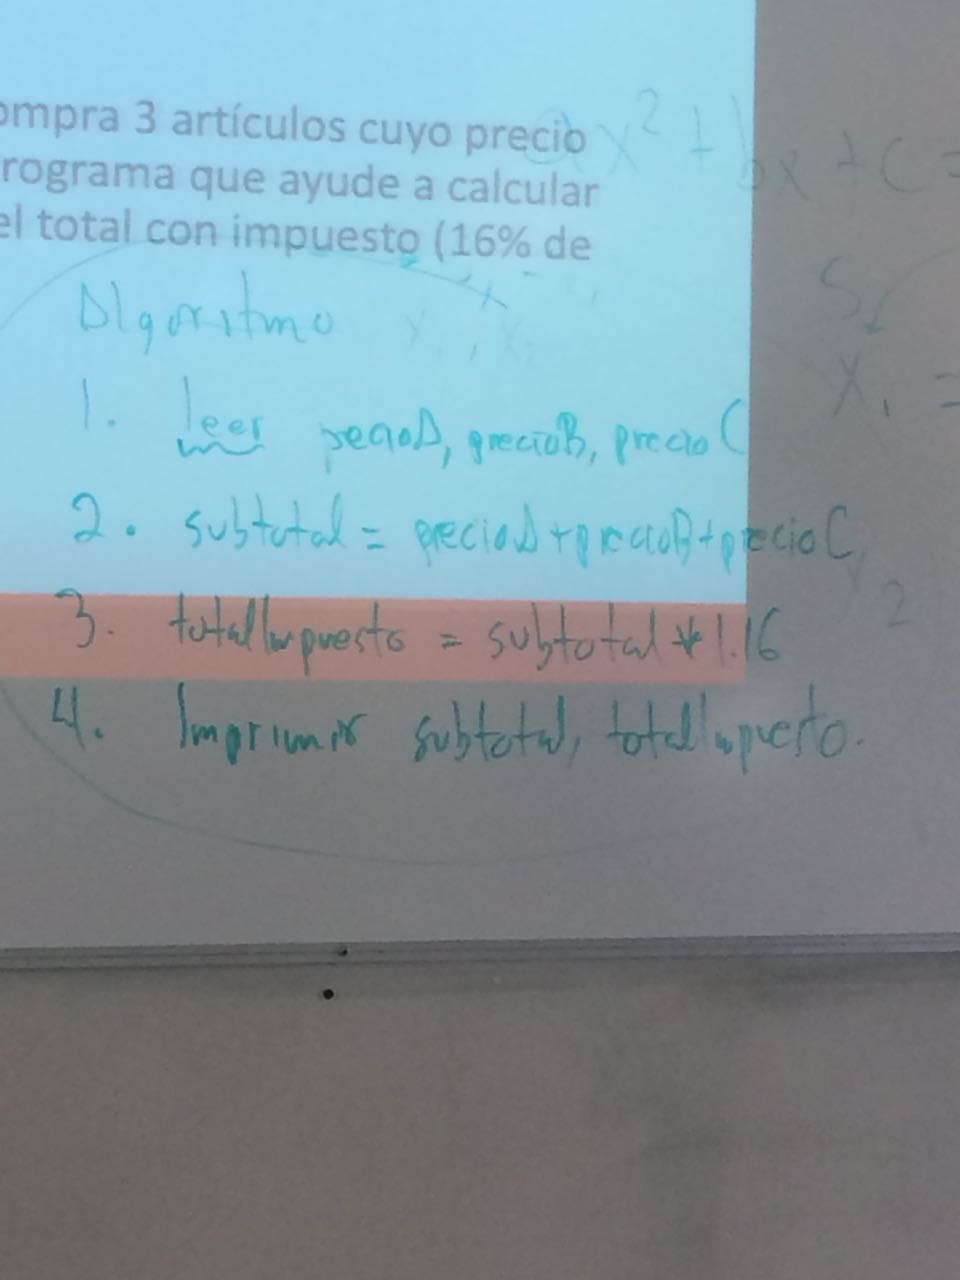 ompra 3 artículos cuyo precio
rograma que ayude a calcular
el total con impuesto (16% de
x² + bx + c =
Algoritmo
x₁, x₂
S
x₁ =
1. leer pecioA, precioB, precio C
2. subtotal = precioA + precioB + precio C
2
3. totalImpuesto = subtotal * 1.16
4. Imprimir subtotal, totalImpuesto.